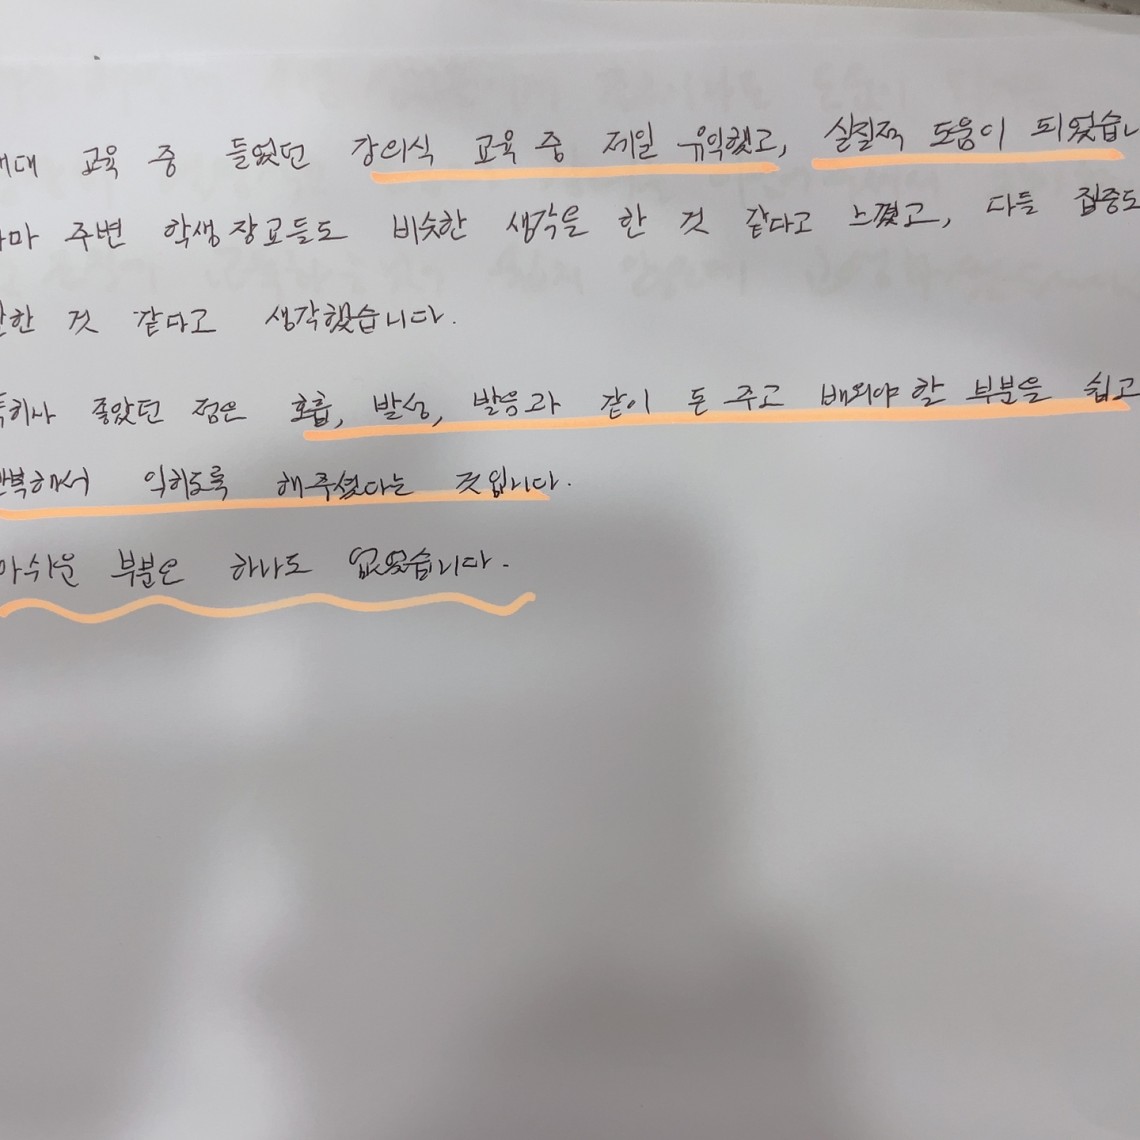 교육 중 들었던 강의식 교육 중 제일 유익했고, 실질적 도움이 되었습니
주변 학생장교들도 비슷한 생각을 한 것 같다고 느꼈고, 다들 집중도
한 것 같다고 생각했습니다.
좋았던 점은 호흡, 발성, 발음과 같이 돈 주고 배워야 할 부분을 쉽고
익히도록 해주셨다는 것입니다.
아쉬운 부분은 하나도 없었습니다.